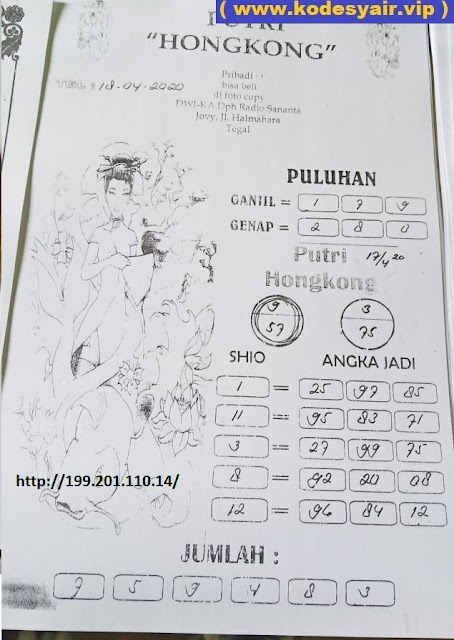 ( www.kodesyair.vip )
PUTRI
"HONGKONG"
TGL : 18-04-2020
Pribadi
bisa beli
di foto copy
DWI-KA Dph Radio Sananta
Jovy, Jl. Halmahera
Tegal
PULUHAN
GANJIL = 1 7 9
GENAP = 2 8 0
Putri 17/4 20
Hongkong
9 3
57 75
SHIO ANGKA JADI
1 = 25 97 85
11 = 95 83 71
3 = 27 99 75
8 = 92 20 08
12 = 96 84 12
http://199.201.110.14/
JUMLAH :
5 9 4 8 3